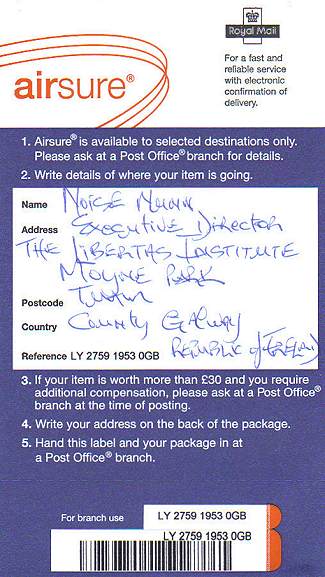 Royal Mail
airsure®
For a fast and
reliable service
with electronic
confirmation of
delivery.
1. Airsure® is available to selected destinations only.
Please ask at a Post Office® branch for details.
2. Write details of where your item is going.
Name Noise
Address Executive Director
The Libertas Institute
Moyne Park
Postcode Tuam
Country County Galway
Republic of Ireland
Reference LY 2759 1953 0GB
3. If your item is worth more than £30 and you require
additional compensation, please ask at a Post Office®
branch at the time of posting.
4. Write your address on the back of the package.
5. Hand this label and your package in at
a Post Office® branch.
For branch use LY 2759 1953 0GB
LY 2759 1953 0GB